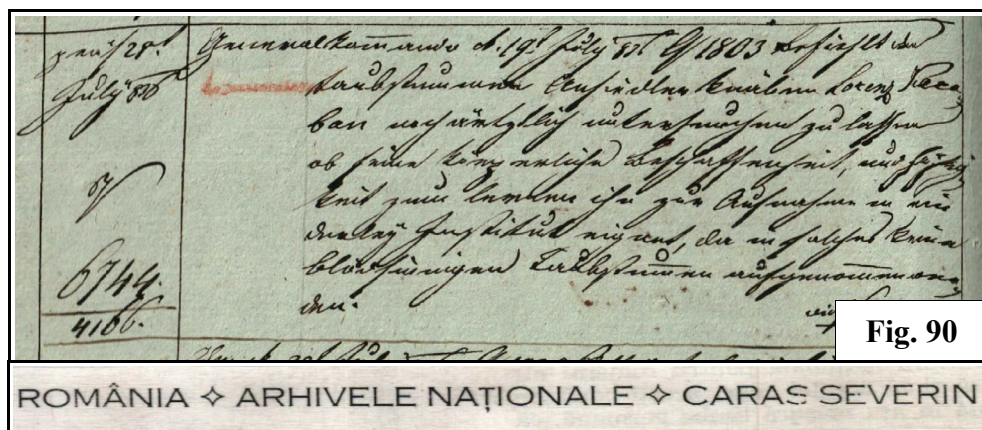 praes 28t
July 836
Generalkommando d. 19t July 836 G 1803 befiehlt den
taubstummen Ansiedler Knaben Lorenz
ban noch ärztlich untersuchen zu lassen
ob seine körperliche Beschaffenheit, und Fähig
keit zum lernen ihn zur Aufnahme in ein
derley Institut eignet, da in solches keine
blödsinnigen Taubstummen aufgenommen wer
den.
6744.
4166.
Fig. 90
ROMÂNIA ✧ ARHIVELE NAȚIONALE ✧ CARAS SEVERIN